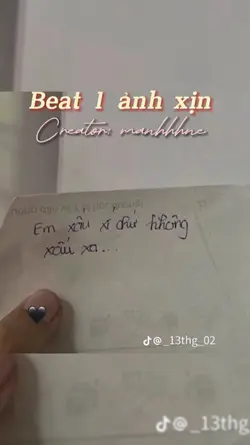 Beat 1 ảnh xịn
Creator: manhhhne
Em xấu xí chứ không
xấu xa...
@_13thg_02
@_13thg